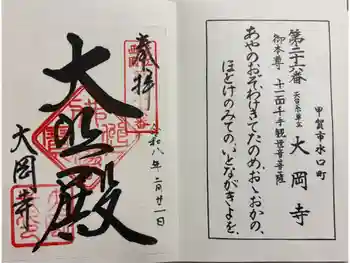 甲賀市水口町
第二十六番 天台系単立 大岡寺
御本尊 十一面千手観世音菩薩
あやのおそわけきてたのめ、おゝおかの、
ほとけのみての、いとながきよを、
奉拝
令和八年二月廿一日
大悲殿
大岡寺